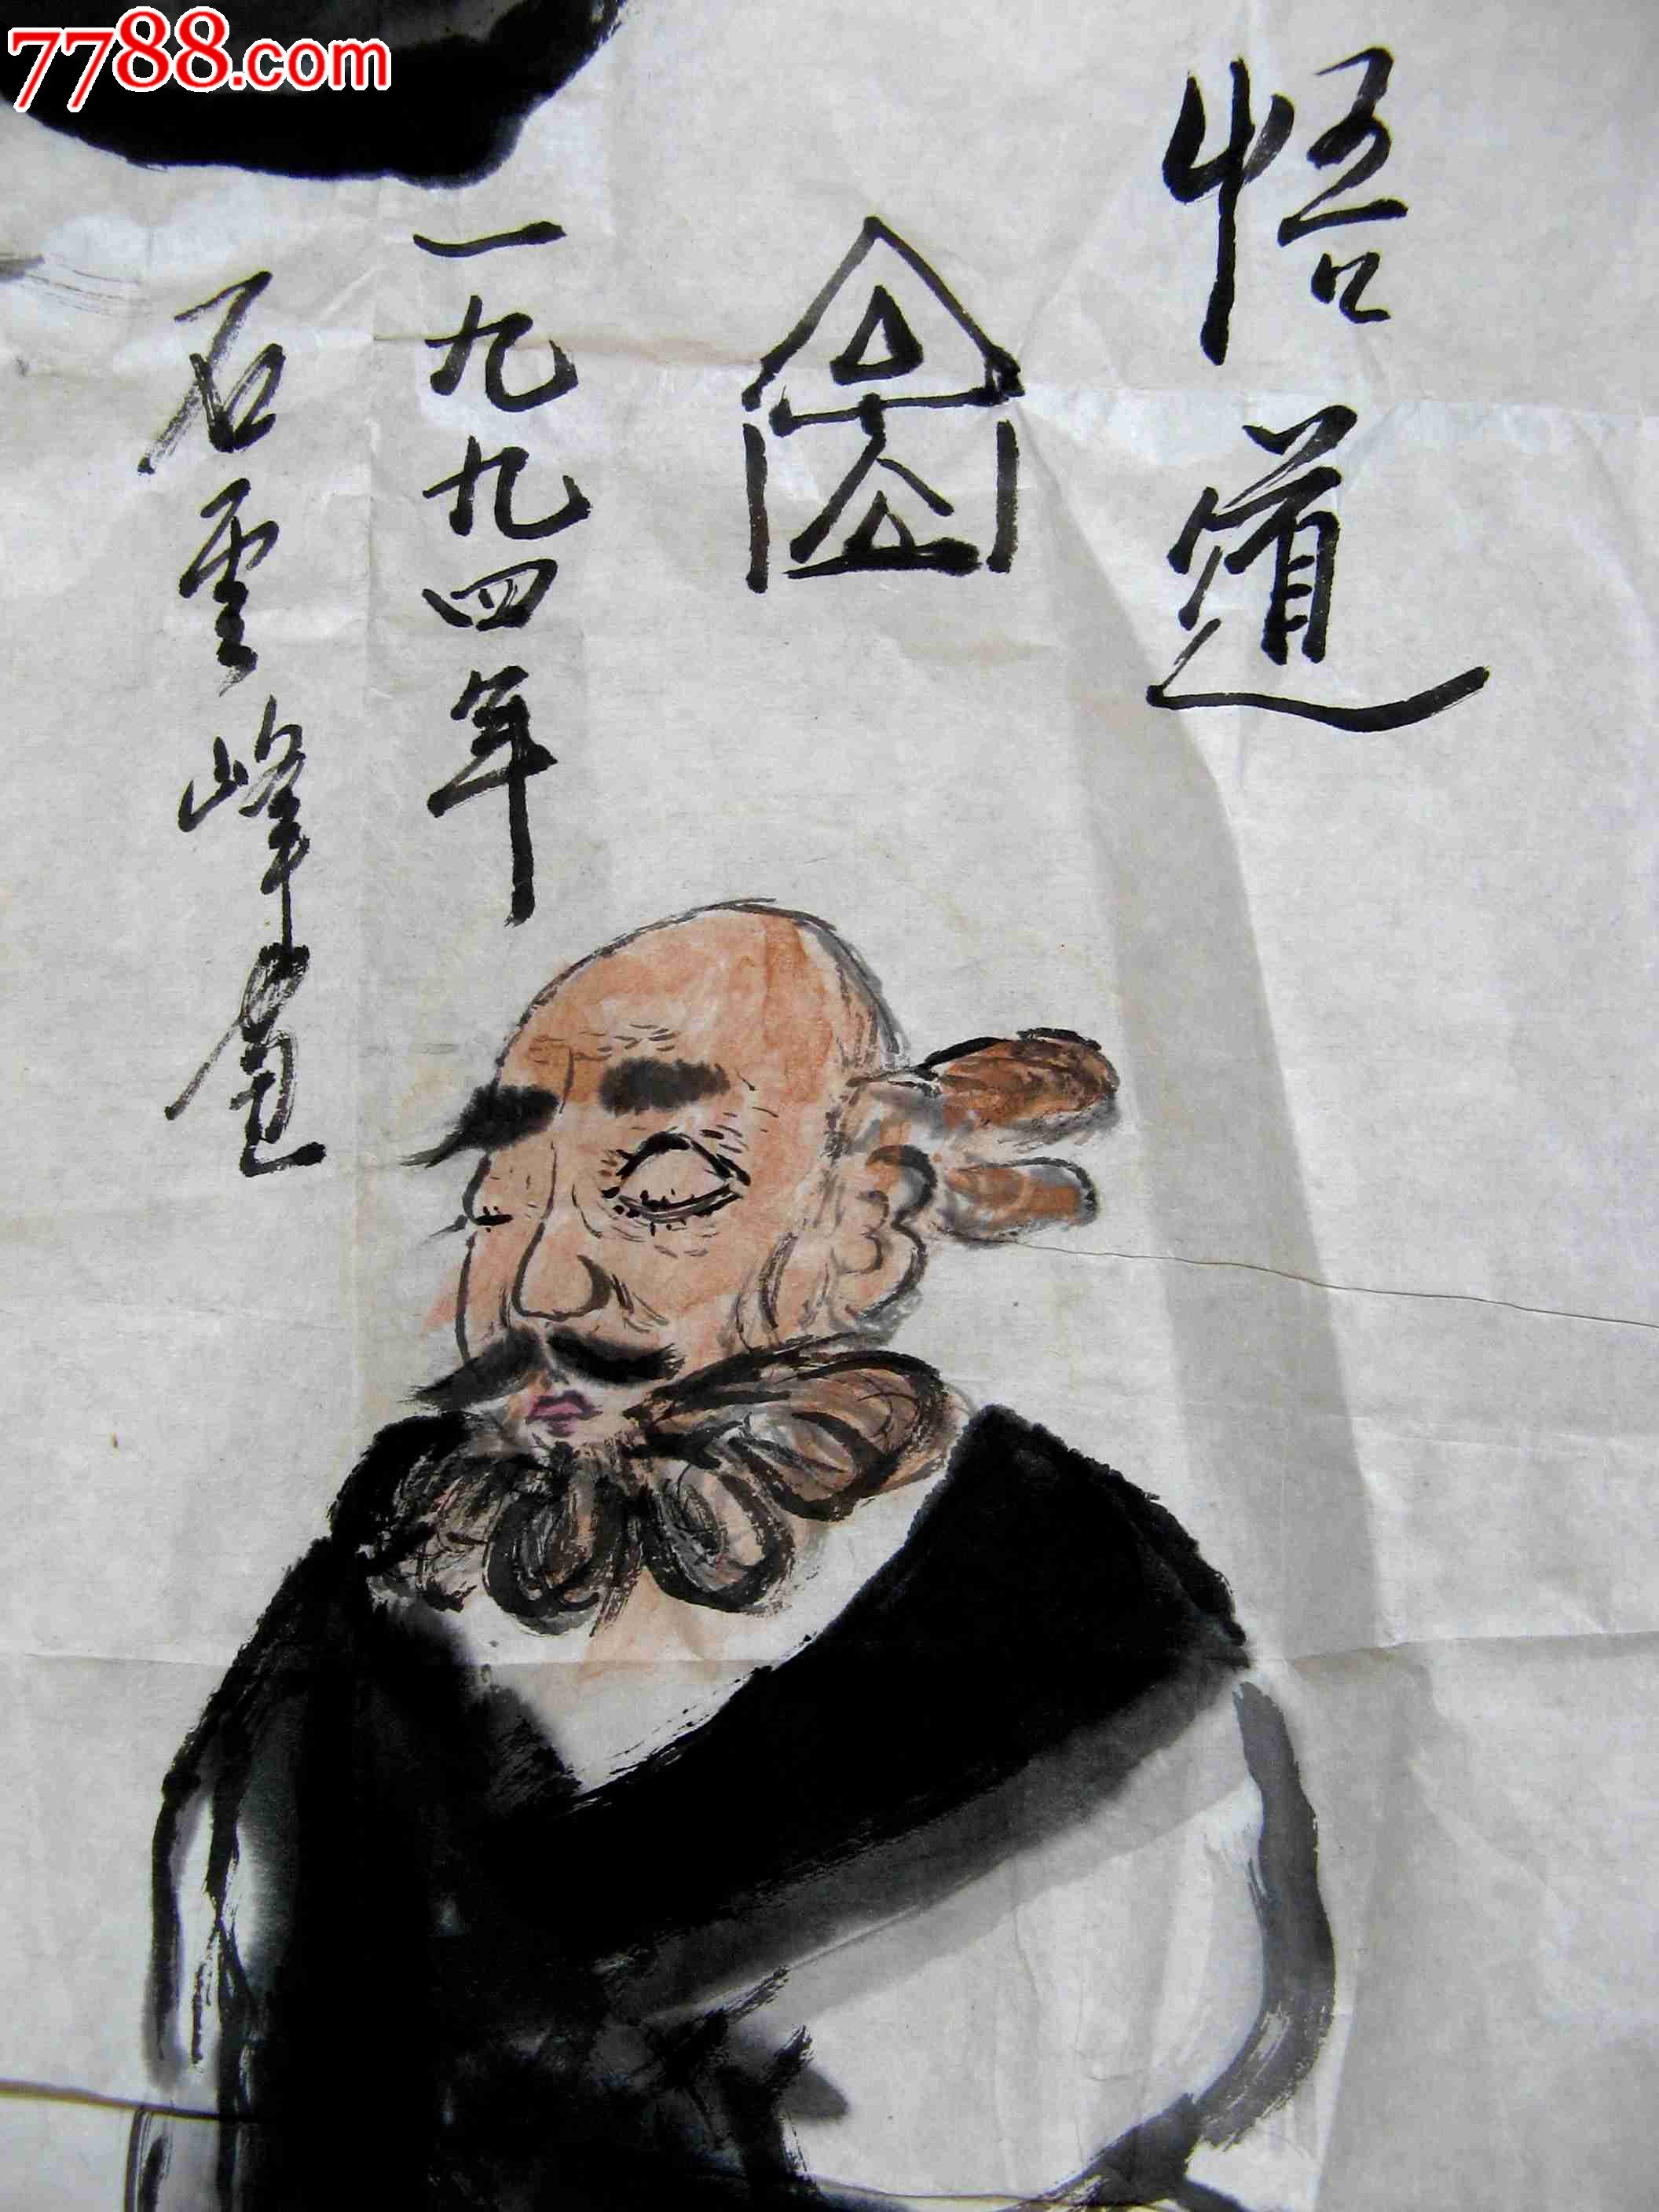 7788.com
悟道
圖
一九九四年
石雲峰畫